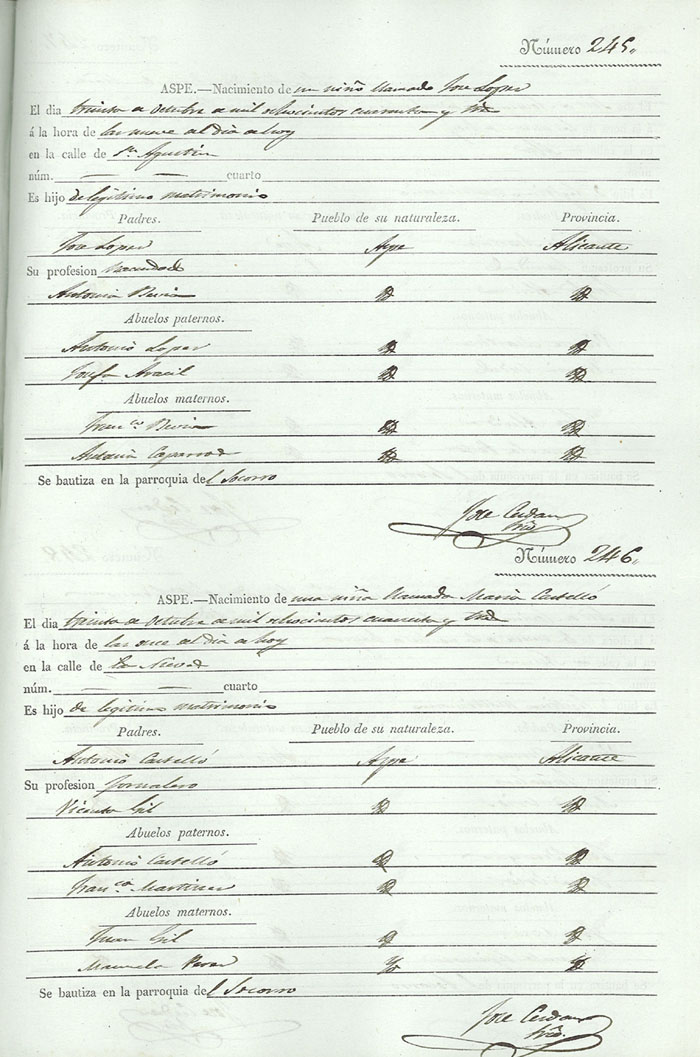 Número 245.
ASPE.—Nacimiento de un niño llamado Jose Lopez
El dia treinta de Octubre de mil ochocientos cuarenta y tres
á la hora de las nueve del dia de hoy
en la calle de Sn. Agustin
núm. — — cuarto
Es hijo de legitimo matrimonio
Padres. Pueblo de su naturaleza. Provincia.
Jose Lopez Aspe Alicante
Su profesion
Antonia
Abuelos paternos.
Antonio Lopez
Josefa Aracil
Abuelos maternos.
Franco.
Antonia
Se bautiza en la parroquia del Socorro
Jose Cerdan
Número 246.
ASPE.—Nacimiento de una niña llamada Maria Castelló
El dia treinta de Octubre de mil ochocientos cuarenta y tres
á la hora de las once del dia de hoy
en la calle de la
núm. — — cuarto
Es hijo de legitimo matrimonio
Padres. Pueblo de su naturaleza. Provincia.
Antonio Castelló Aspe Alicante
Su profesion Jornalero
Vicenta Gil
Abuelos paternos.
Antonio Castelló
Franca. Martinez
Abuelos maternos.
Juan Gil
Manuela
Se bautiza en la parroquia del Socorro
Jose Cerdan